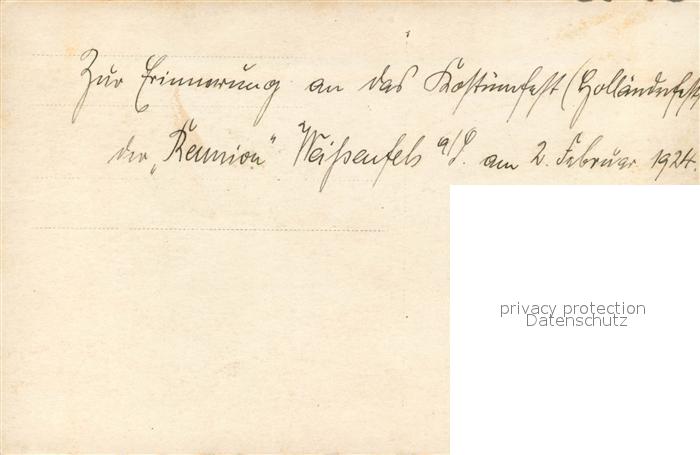 Zur Erinnerung an das Kostümfest (Holländerfest
der „Reunion" Weißenfels a/S. am 2. Februar 1924.
privacy protection
Datenschutz